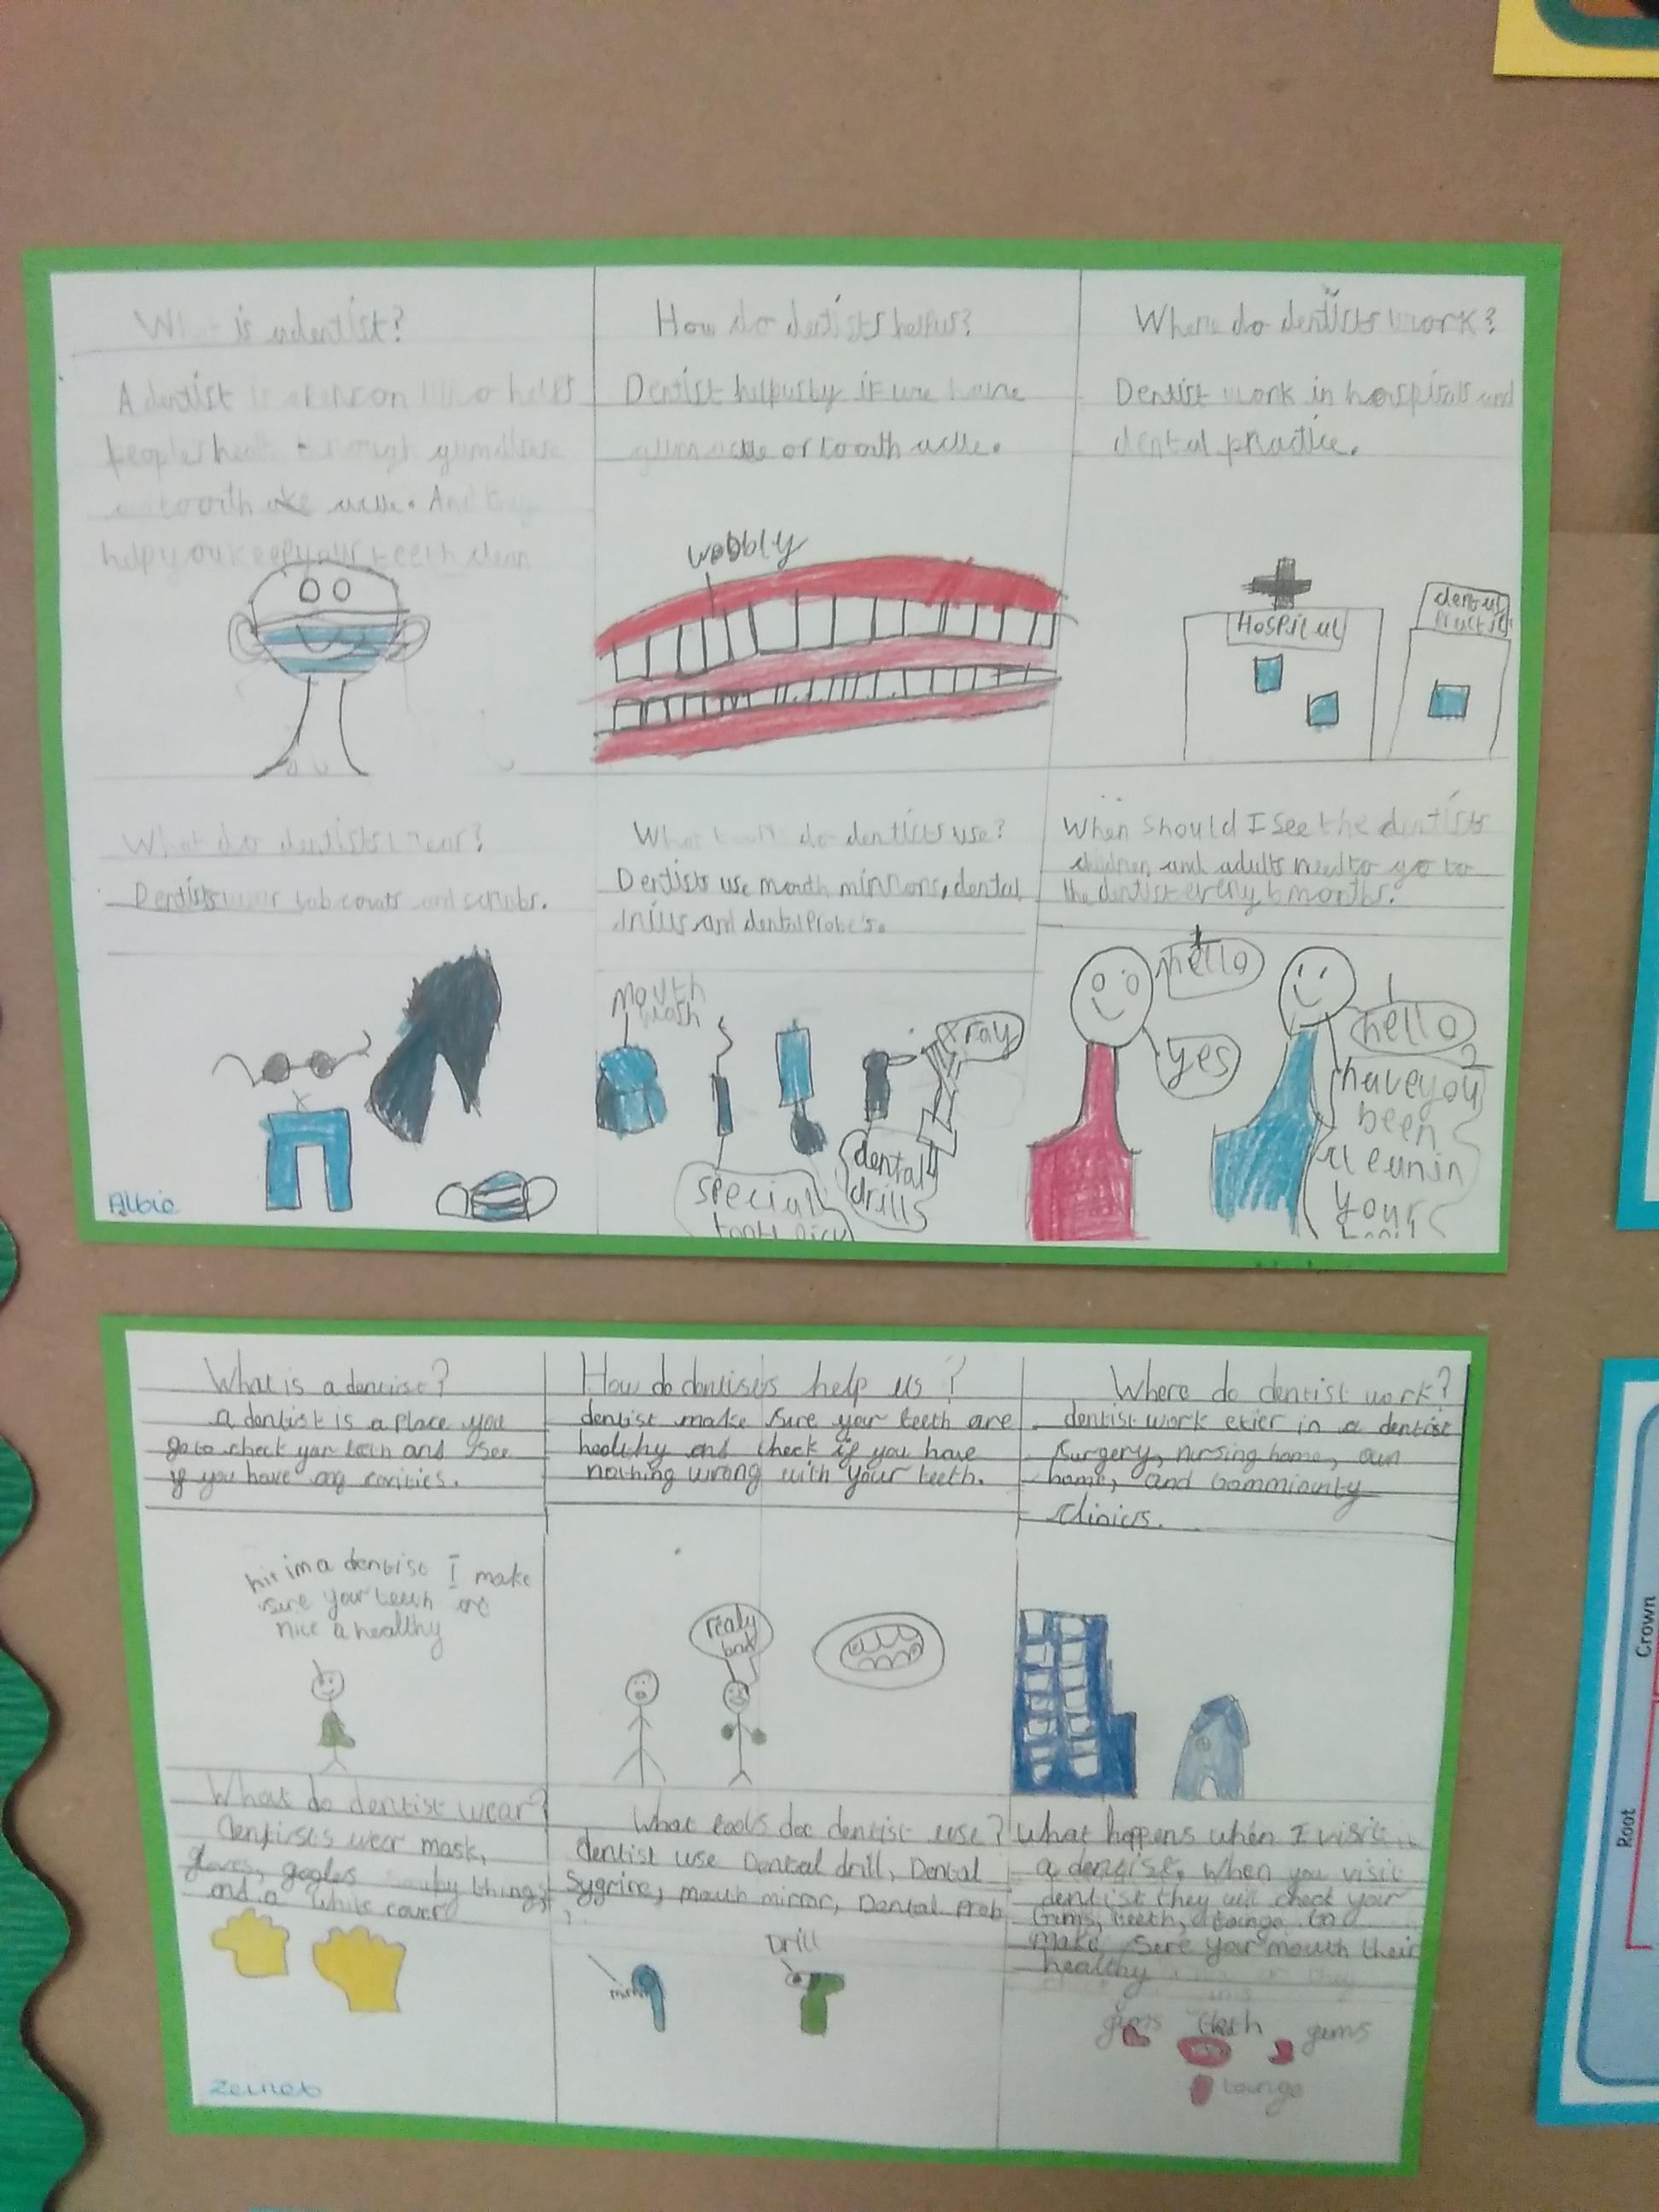 is a dentist?
A dentist is a person who helps
people's health through
tooth acke. And
help you keep your teeth clean
How do dentists help us?
Dentist help us by if we have
gum acke or tooth acke.
wobbly
Where do dentists work?
Dentist work in hospitals and
dental practice.
Hospital
dental
Practic
What do dentists wear?
Dentists wear lab coats and scrubs.
Albie
What tools do dentists use?
Dentists use mouth mirrors, dental
drills and dental Probe's.
mouth
wash
special
tooth pick
dental
drills
x ray
When Should I See the dentists
children and adults need to go to
the dentist every 6 months.
hello
yes
hello
have you
been
cleanin
your
What is a dentist?
a dentist is a place you
go to check your teeth and see
if you have any cavities.
hi im a dentist I make
sure your teeth are
nice a healthy
How do dentists help us?
dentist make sure your teeth are
healthy and check if you have
nothing wrong with your teeth.
realy
bad
Where do dentist work?
dentist work etier in a dentist
surgery, nursing home, own
home, and commiounity
clinics.
What do dentist wear?
Dentirsts wear mask,
gloves, gogles things,
and a white cover
Zeineb
What tools doe dentist use?
dentist use Dental drill, Dental
Sygrine, mouth mirror, Dental Prob
Drill
What happens when I visit
a dentist. When you visit
dentist they will check your
Gums, teeth, tounge to
make sure your mouth their
healthy
gums
teeth
gums
tounge
Crown
Root